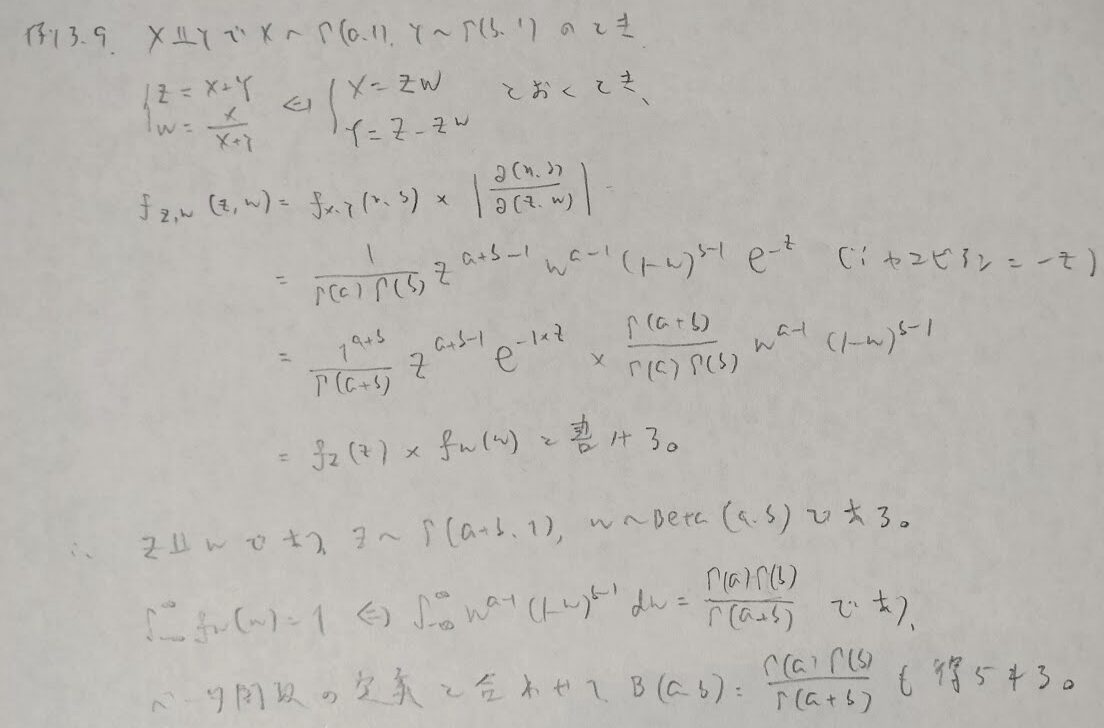 例3.9. X⫫Yで X ~ Γ(a.1), Y ~ Γ(b.1) のとき
{Z = X+Y, W = X/(X+Y) ⇔ {X = ZW, Y = Z-ZW とおくとき、
f_{Z,W}(z,w) = f_{X,Y}(x,y) × |∂(x,y)/∂(z,w)|
= 1/(Γ(a)Γ(b)) z^{a+b-1} w^{a-1} (1-w)^{b-1} e^{-z} (∵ ヤコビアン = -z)
= 1^{a+b}/Γ(a+b) z^{a+b-1} e^{-1×z} × Γ(a+b)/(Γ(a)Γ(b)) w^{a-1} (1-w)^{b-1}
= f_Z(z) × f_W(w) と書ける。
∴ Z⫫W であり Z ~ Γ(a+b,1), W ~ Beta(a,b) である。
∫_{-∞}^{∞} f_W(w) = 1 ⇔ ∫_{-∞}^{∞} w^{a-1} (1-w)^{b-1} dw = Γ(a)Γ(b)/Γ(a+b) であり、
ベータ関数の定義と合わせて B(a,b) = Γ(a)Γ(b)/Γ(a+b) も得られる。